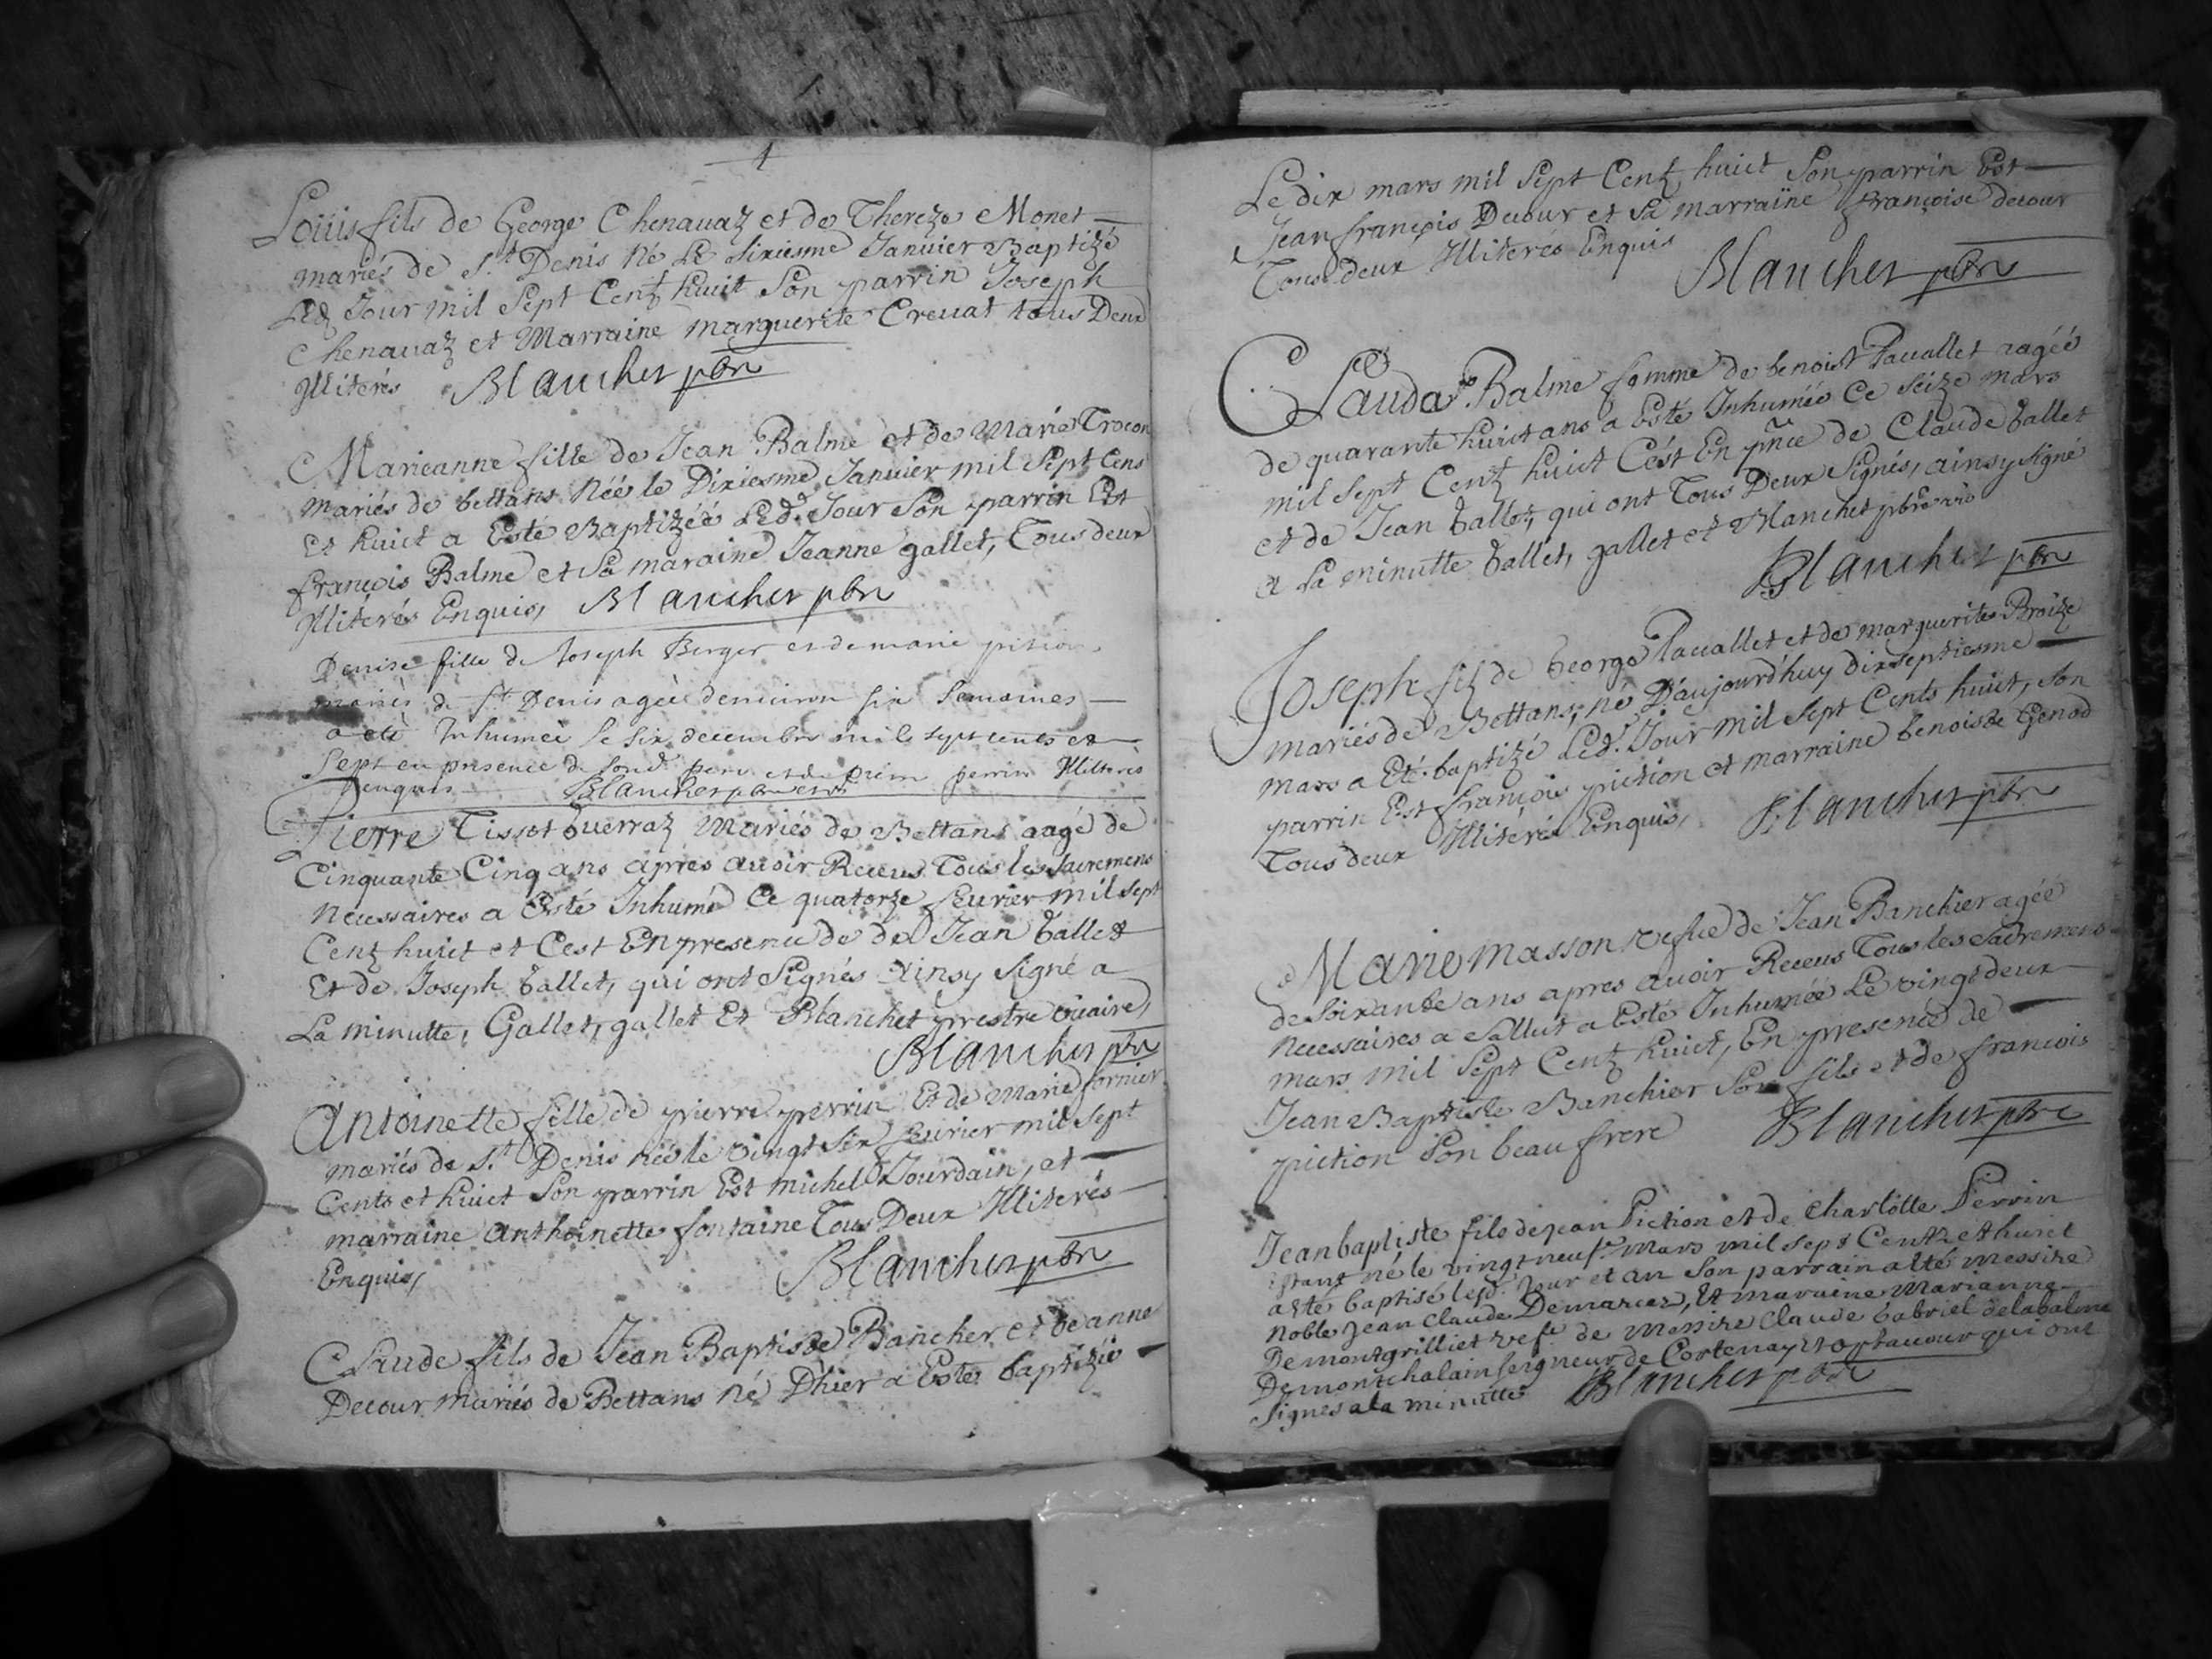 Louis fils de George Chenauaz et de Thereze Monet
mariés de S.t Denis Né Le Sixiesme Januier Baptizé
Led Jour mil Sept Centz huit Son parrin Joseph
Chenauaz et Marraine marguerite Creuat tous Deux
Illiterés Blanchet pbre
Marieanne fille de Jean Balme et de Marie Trocon
mariés de bettans Néé le Dixiesme Januier mil Sept Cens
Et huict a Esté Baptizéé Led.t Jour Son parrin Est
françois Balme et Sa maraine Jeanne gallet, Tous deux
Illiterés Enquis, Blanchet pbre
Denise fille de Joseph Berger et de marie pition
mariés de S.t Denis agée denuiron six Semaines
a eté Inhumée le six decembre mil sept cents et
Sept en presence de perrin Illiterés
enquis Blanchet pbre
Pierre Tissot Guerraz Mariés de Bettans aagé de
Cinquante Cinq ans apres auoir Receus Tous les Sacremens
necessaires a Esté Inhumé Ce quatorze feurier mil sept
Centz huict et C'est En presence de de Jean Gallet
Et de Joseph Gallet, qui ont Signés Ainsy Signé a
La minutte, Gallet, gallet Et Blanchet prestre vicaire,
Blanchet pbre
Antoinette fille de pierre perrin Et de Marie fornier
mariés de S.t Denis néé le vingt Six feurier mil Sept
Cents et huict Son parrin Est michel Jourdain, et
marraine Anthoinette fontaine Tous Deux Illiterés
Enquis, Blanchet pbre
Claude fils de Jean Baptiste Bancher et Jeanne
Decour mariés de Bettans né D'hier a Esté baptizé
Le dix mars mil Sept Centz huict Son parrin Est
Jean françois Decour et Sa marraine françoise decour
Tous deux Illiterés Enquis
Blanchet pbre
Clauda Balme femme de benoist Pauallet aagéé
de quarante huict ans a Esté Inhuméé Ce Seize mars
mil Sept Centz huict C'est En pñce de Claude Gallet
et de Jean Gallet, qui ont Tous Deux Signés, ainsy signé
a La minutte Gallet, gallet et Blanchet pbre
Blanchet pbre
Joseph filz de George Pauallet et de marguerite Broize
mariés de Bettans; né D'aujourd'huy dixseptiesme
mars a Eté baptizé Led.t Jour mil Sept Cents huict, Son
parrin Est françois piction et marraine benoiste Genod
Tous deux Illiterés Enquis, Blanchet pbre
Marie masson vefue de Jean Banchier agéé
de Soixante ans apres auoir Receus Tous les Sacremens
necessaires a Sallut a Esté Inhuméé Le vingt deux
mars mil Sept Centz huict, En presence de
Jean Baptiste Banchier Son fils et de françois
piction Son beau frere Blanchet pbre
Jean baptiste fils de jean Piction et de Charlotte Perrin
Estant né le vingt neuf.e mars mil Sept Centz et huict
a esté baptisé lesd. Jour et an Son parrain a esté messire
Noble Jean Claude Demarcez, Et maraine Marianne
Demontgrilliet vef.e de Messire Claude Gabriel delabalme
Demontchalain seigneur de Cortenay qui ont
Signés a la minutte Blanchet pbre